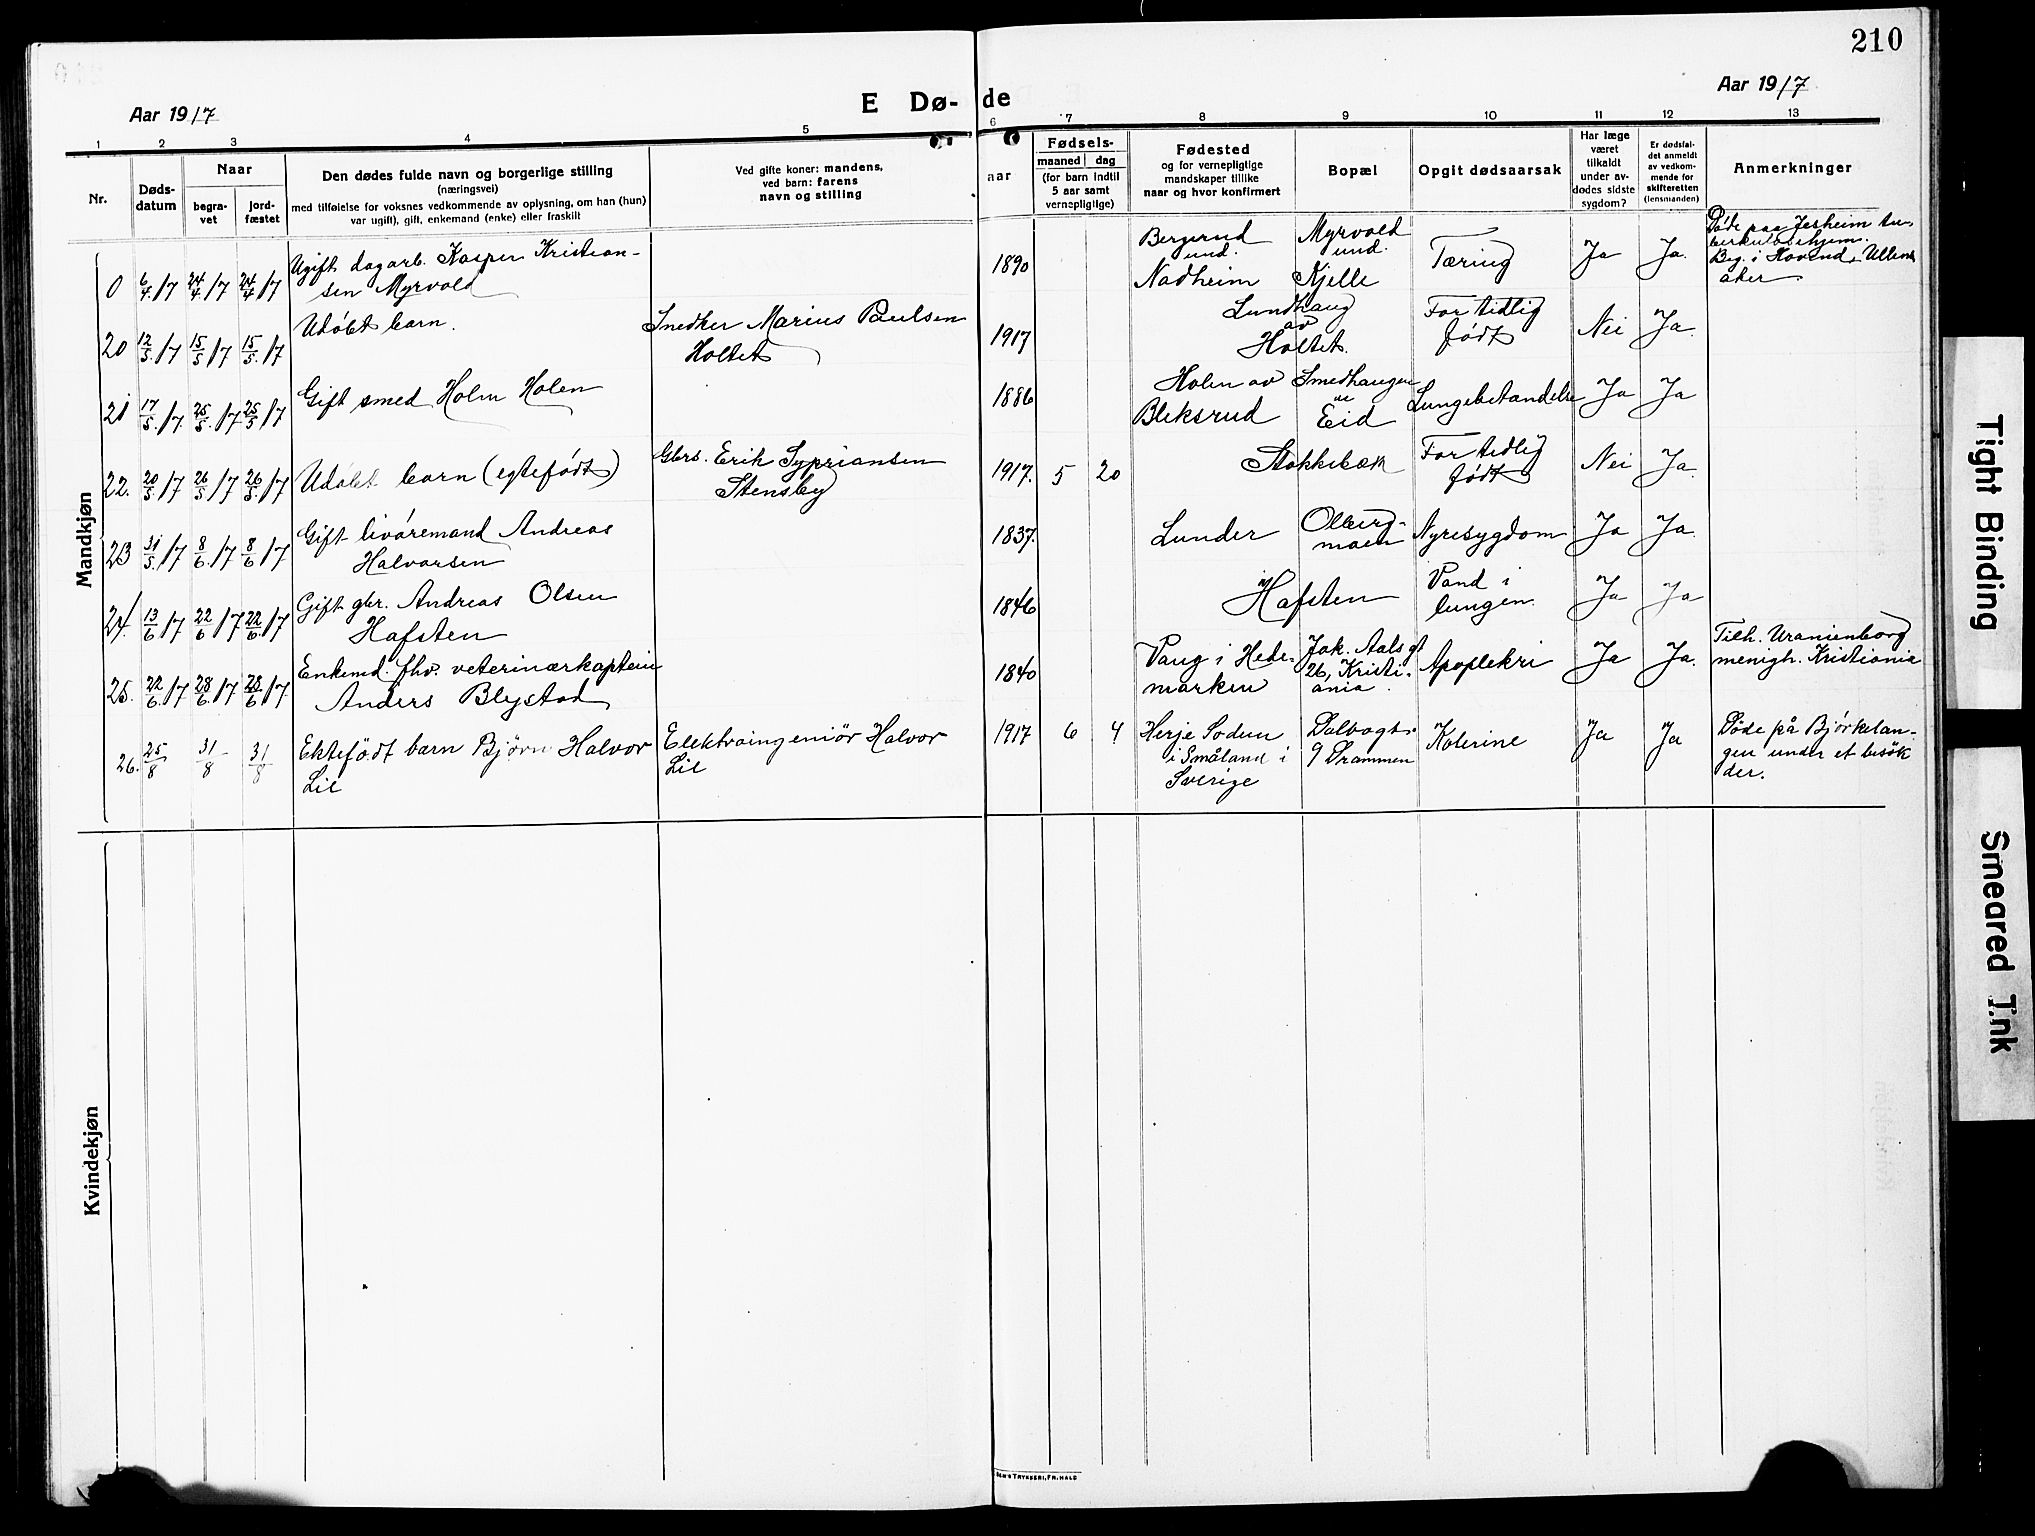 210
Aar 1917
E Dø-
de
Aar 1917
1 2 3 4 5 6 7 8 9 10 11 12 13
Nr.
Døds-
datum
Naar
begra-
vet
jord-
fæstet
Den dødes fulde navn og borgerlige stilling
(næringsvei)
med tilføielse for voksnes vedkommende av oplysning, om han (hun)
var ugift), gift, enkemand (enke) eller fraskilt
Ved gifte koner: mandens,
ved barn: farens
navn og stilling
aar
Fødsels-
maaned | dag
(for barn indtil
5 aar samt
vernepligtige)
Fødested
og for vernepligtige
mandskaper tillike
naar og hvor konfirmert
Bopæl
Opgit dødsaarsak
Har læge
været
tilkaldt
under av-
dødes sidste
sygdom?
Er dødsfal-
det anmeldt
av vedkom-
mende for
skifteretten
(lensmanden)
Anmerkninger
Mandkjøn
0 6/4.17 24/4.17 24/4.17
Ugift dagarb. Kasper Kristian-
sen Myrvold
1890
Bergerud
und.
Nadheim
Myrvold
und.
Kjelle
Tæring
Ja
Ja.
Døde paa Jesheim tu-
berkulosehjem.
Beg. i Hovind, Ullens-
aker
20 12/5.17 15/5.17 15/5.17
Udøbt barn.
Snedker Marius Paulsen
Holtet
1917
Lundhaug
av
Holtet.
For tidlig
født
Nei
Ja.
21 17/5.17 25/5.17 25/5.17
Gift smed Holm Holen
1886
Holen av
Bleksrud
Smedhaugen
av
Eid
Lungebetændelse
Ja
Ja
22. 20/5.17 26/5.17 26/5.17
Udøbt barn (egtefødt)
Gbrs. Erik Sypriansen
Stensby
1917. 5 20
Stokkebæk
For tidlig
født
Nei
Ja.
23 31/5.17 8/6.17 8/6.17
Gift livøremand Andreas
Halvorsen
1837.
Lunder
Olberg-
moen
Nyresygdom
Ja
Ja.
24. 13/6.17 22/6.17 22/6.17
Gift gbr. Andreas Olsen
Hafsten
1846
Hafsten
Vand i
lungen.
Ja
Ja
25. 22/6.17 28/6.17 28/6.17
Enkemd. fhv. veterinærkaptein
Anders Blystad
1840
Vang i Hede-
marken
Jak. Aals gt
26, Kristi-
ania.
Apoplekri
Ja
Ja.
Tilh. Uranienborg
menigh. Kristiania
26. 25/8 31/8 31/8
Ektefödt barn Björn Halvor
Lie
Elektroingeniör Halvor
Lie
1917 6 4
i Småland i
Sverige
9 Drammen
Kolerine
Ja
Ja
Döde på Björkelan-
gen under et besök
der.
Kvindekjøn
TRYKKERI, FR.HALD
Tight Binding
Smeared Ink